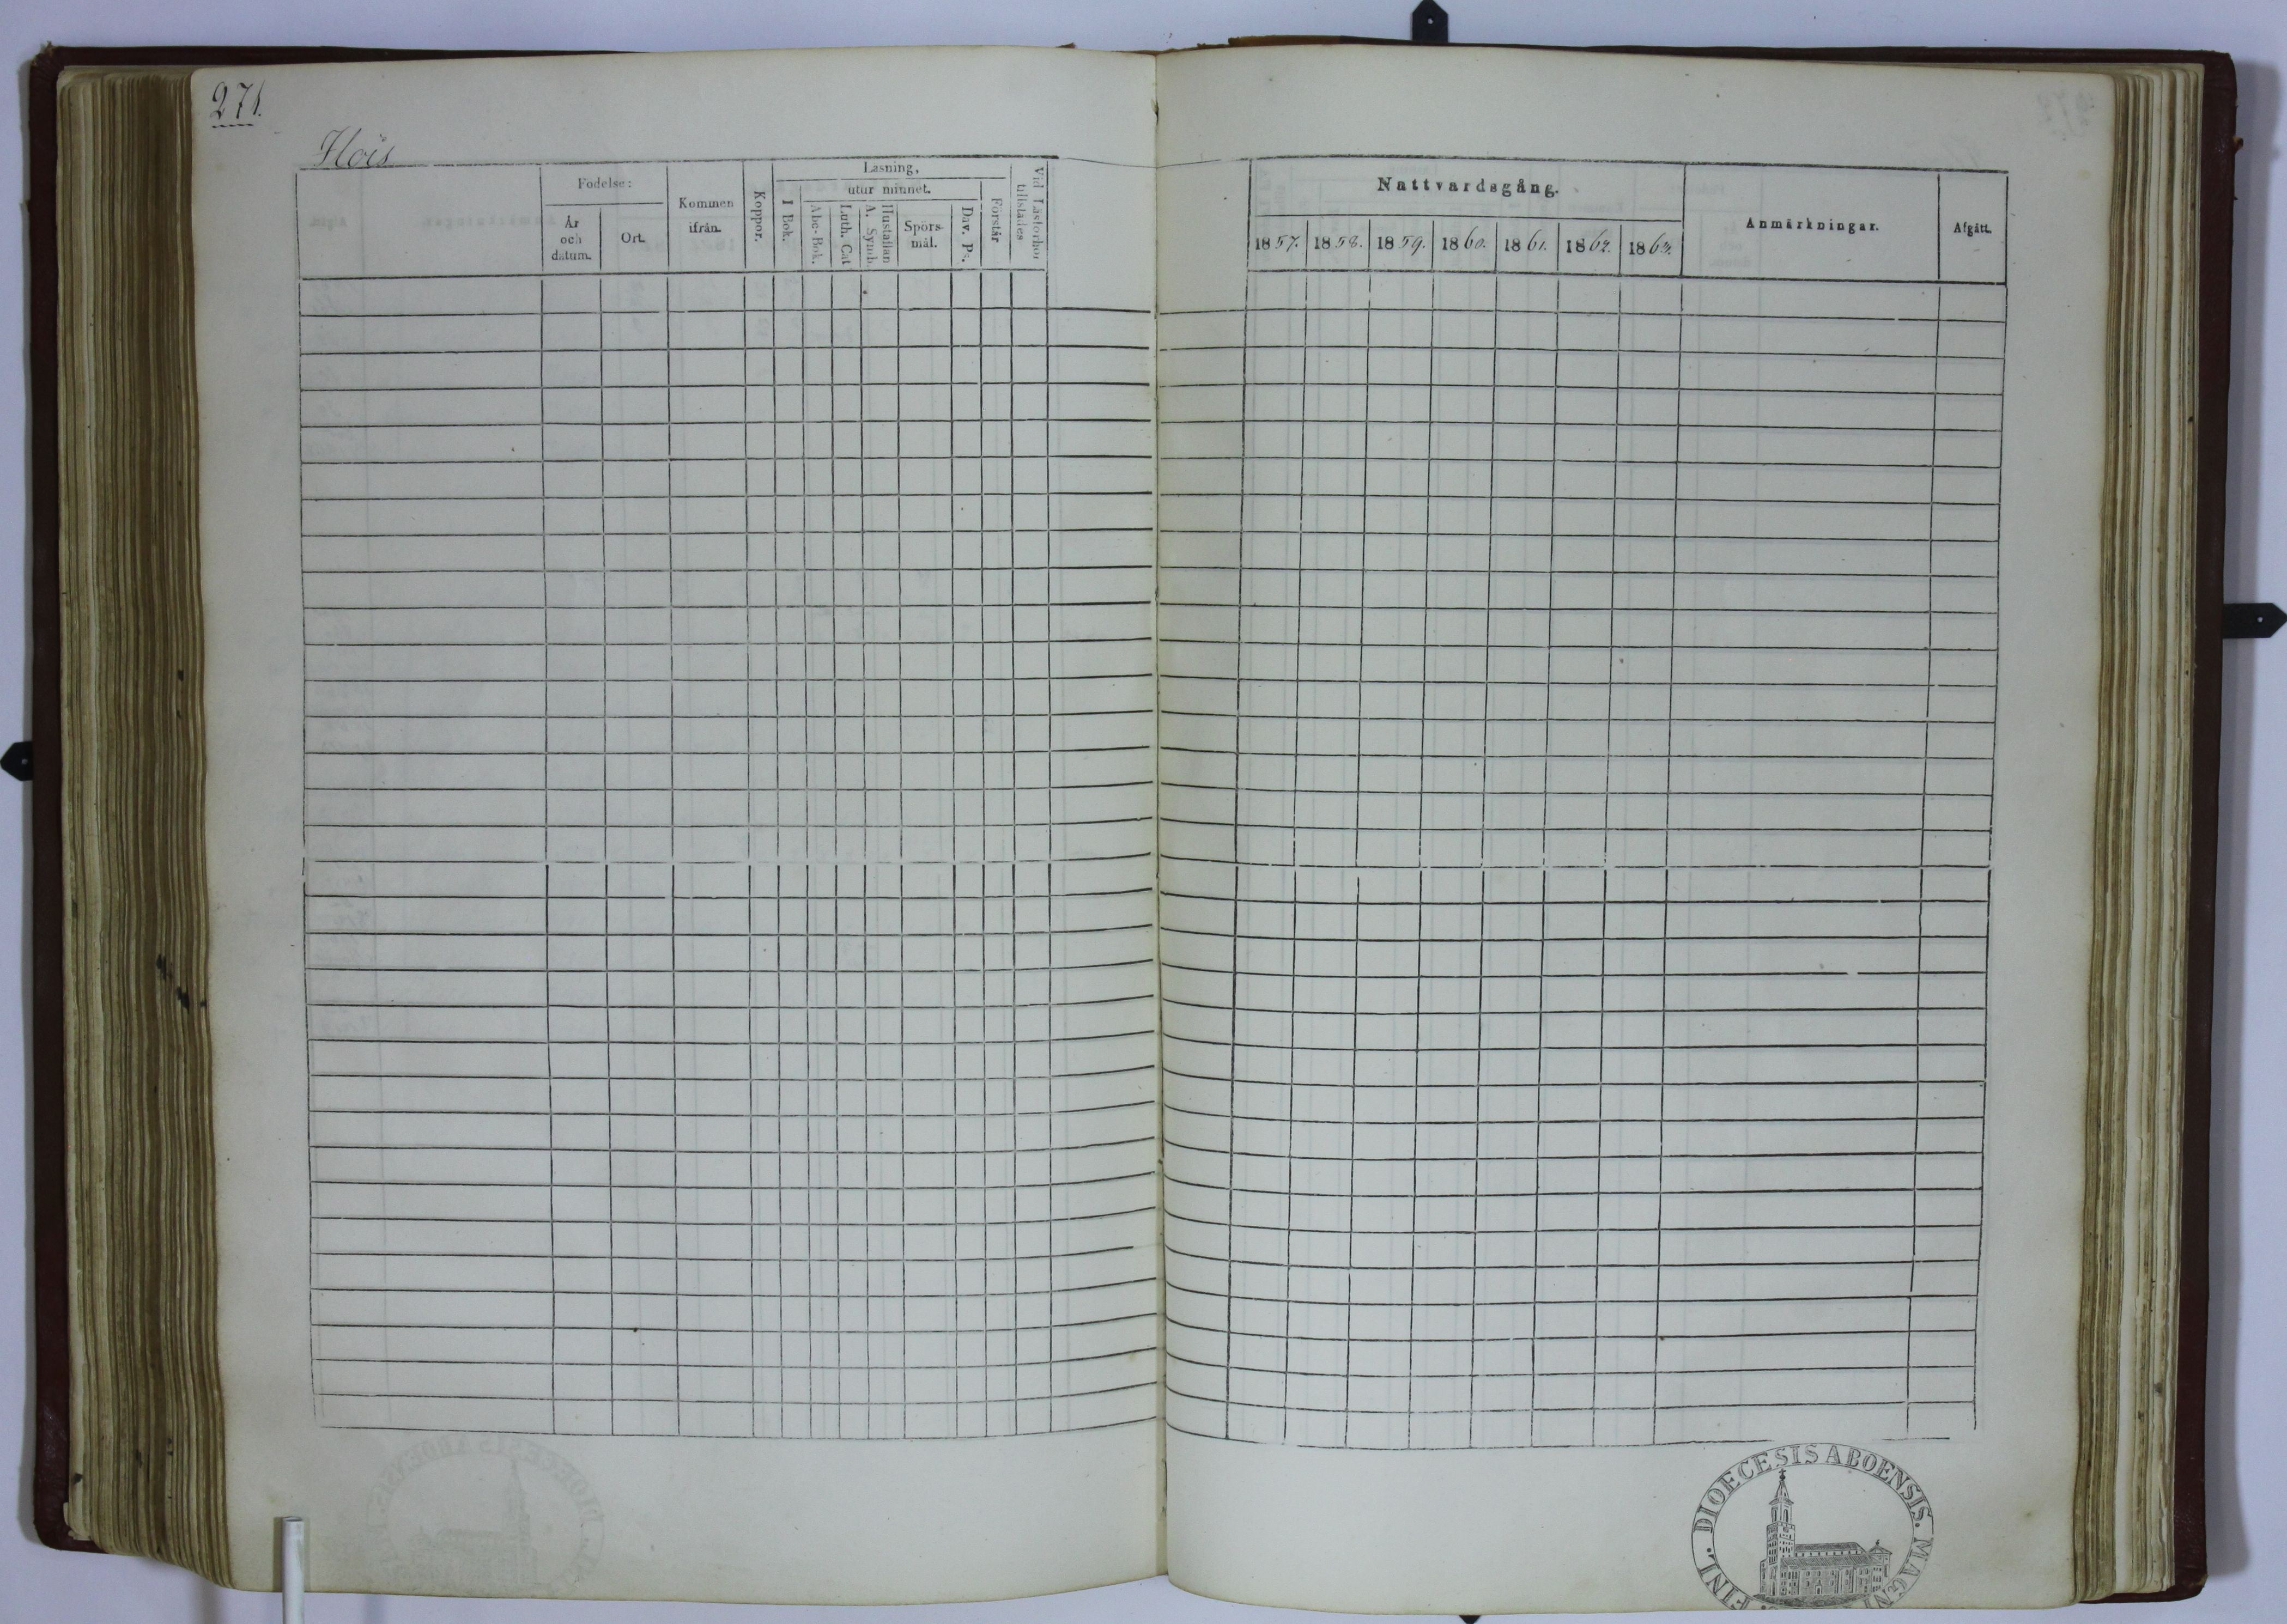 271.
Hois
Födelse:
År och datum.
Ort.
Kommen ifrån.
Koppor.
Läsning,
I Bok.
utur minnet.
Abc-Bok.
Luth. Cat
Hustaflan A. Symb.
Spörsmål.
Dav. Ps.
Förstår
Vid Läsförhör tillstädes
Nattvardsgång.
1857. 1858. 1859. 1860. 1861. 1862. 1863.
Anmärkningar.
Afgått.
DIOECESIS ABOENSIS. MAGNI